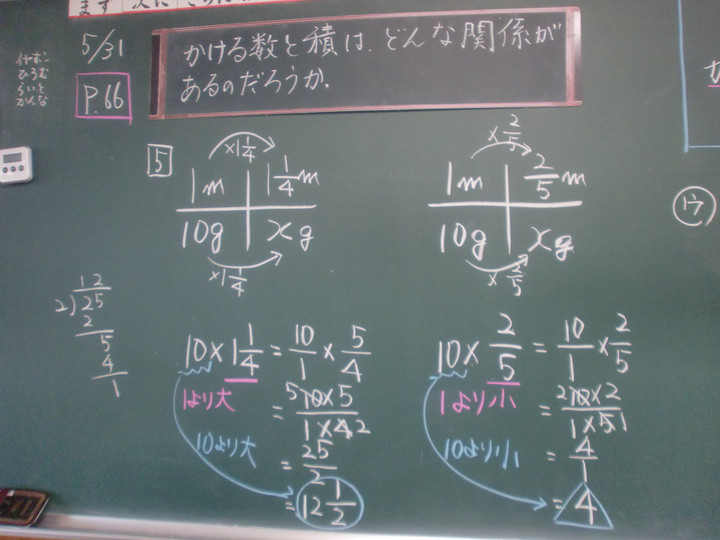 5/31
P.66
かける数と積は、どんな関係が
あるのだろうか。
5
×1 1/4
1m 1 1/4 m
10g xg
×1 1/4
×2/5
1m 2/5 m
10g xg
×2/5
ウ
12
2)25
2
5
4
1
10×1 1/4 = 10/1 × 5/4
1より大
= 10×5/1×4
5 2
10より大
= 25/2
= 12 1/2
10×2/5 = 10/1 × 2/5
1より小
= 10×2/1×5
2 1
10より小
= 4/1
= 4